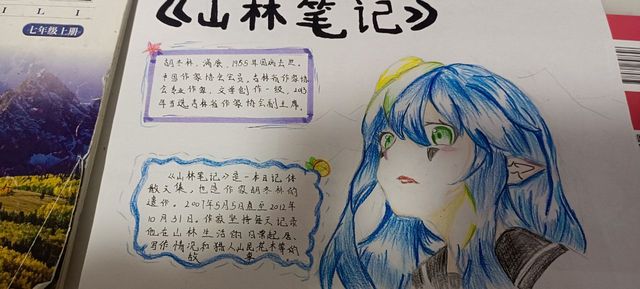 七年级上册
L I
《山林笔记》
胡冬林，满族，1955年因病去世。
中国作家协会会员，吉林省作家协
会专业作家，文学创作一级，2013
年当选吉林省作家协会副主席。
《山林笔记》是一本日记体
散文集，也是作家胡冬林的
遗作。2007年5月5日直至2012年
10月31日，作家坚持每天记录
他在山林生活的日常起居、
写作情况和猎人山民花木等的
故事